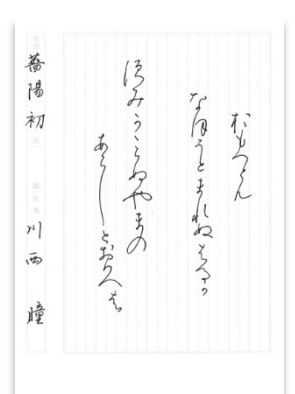 おもへとも
なほうとまれぬはるか
須みかゝらぬやまの
あらしとおもへは
薔陽 初 川西 瞳